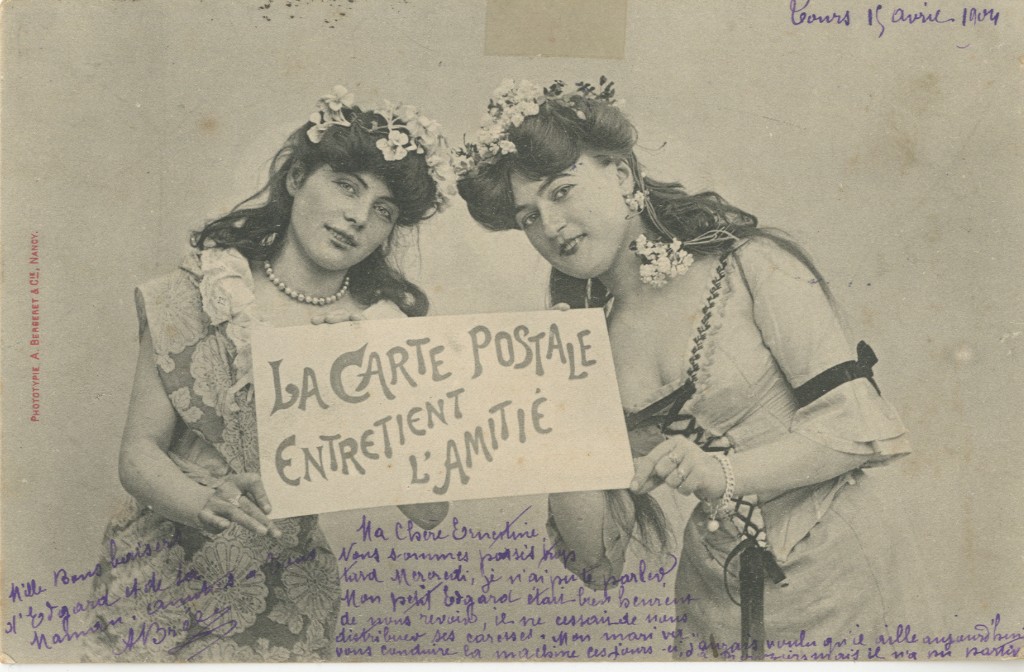 Tours 15 avril 1904
PHOTOTYPIE A. BERGERET & CIE, NANCY.
LA CARTE POSTALE
ENTRETIENT
L'AMITIÉ
Ma Chère Ernestine,
Nous sommes partis trop
tard Mercredi, je n'ai pu te parler,
Mon petit Edgard était bien heureux
de vous revoir, il ne cessait de nous
distribuer ses caresses. Mon mari va
vous conduire la machine ces jours-ci, j'aurais voulu qu'il aille aujourd'hui
mais il n'a pu partir
Mille Bons baisers
d'Edgard et de la
Maman. amitiés à tous